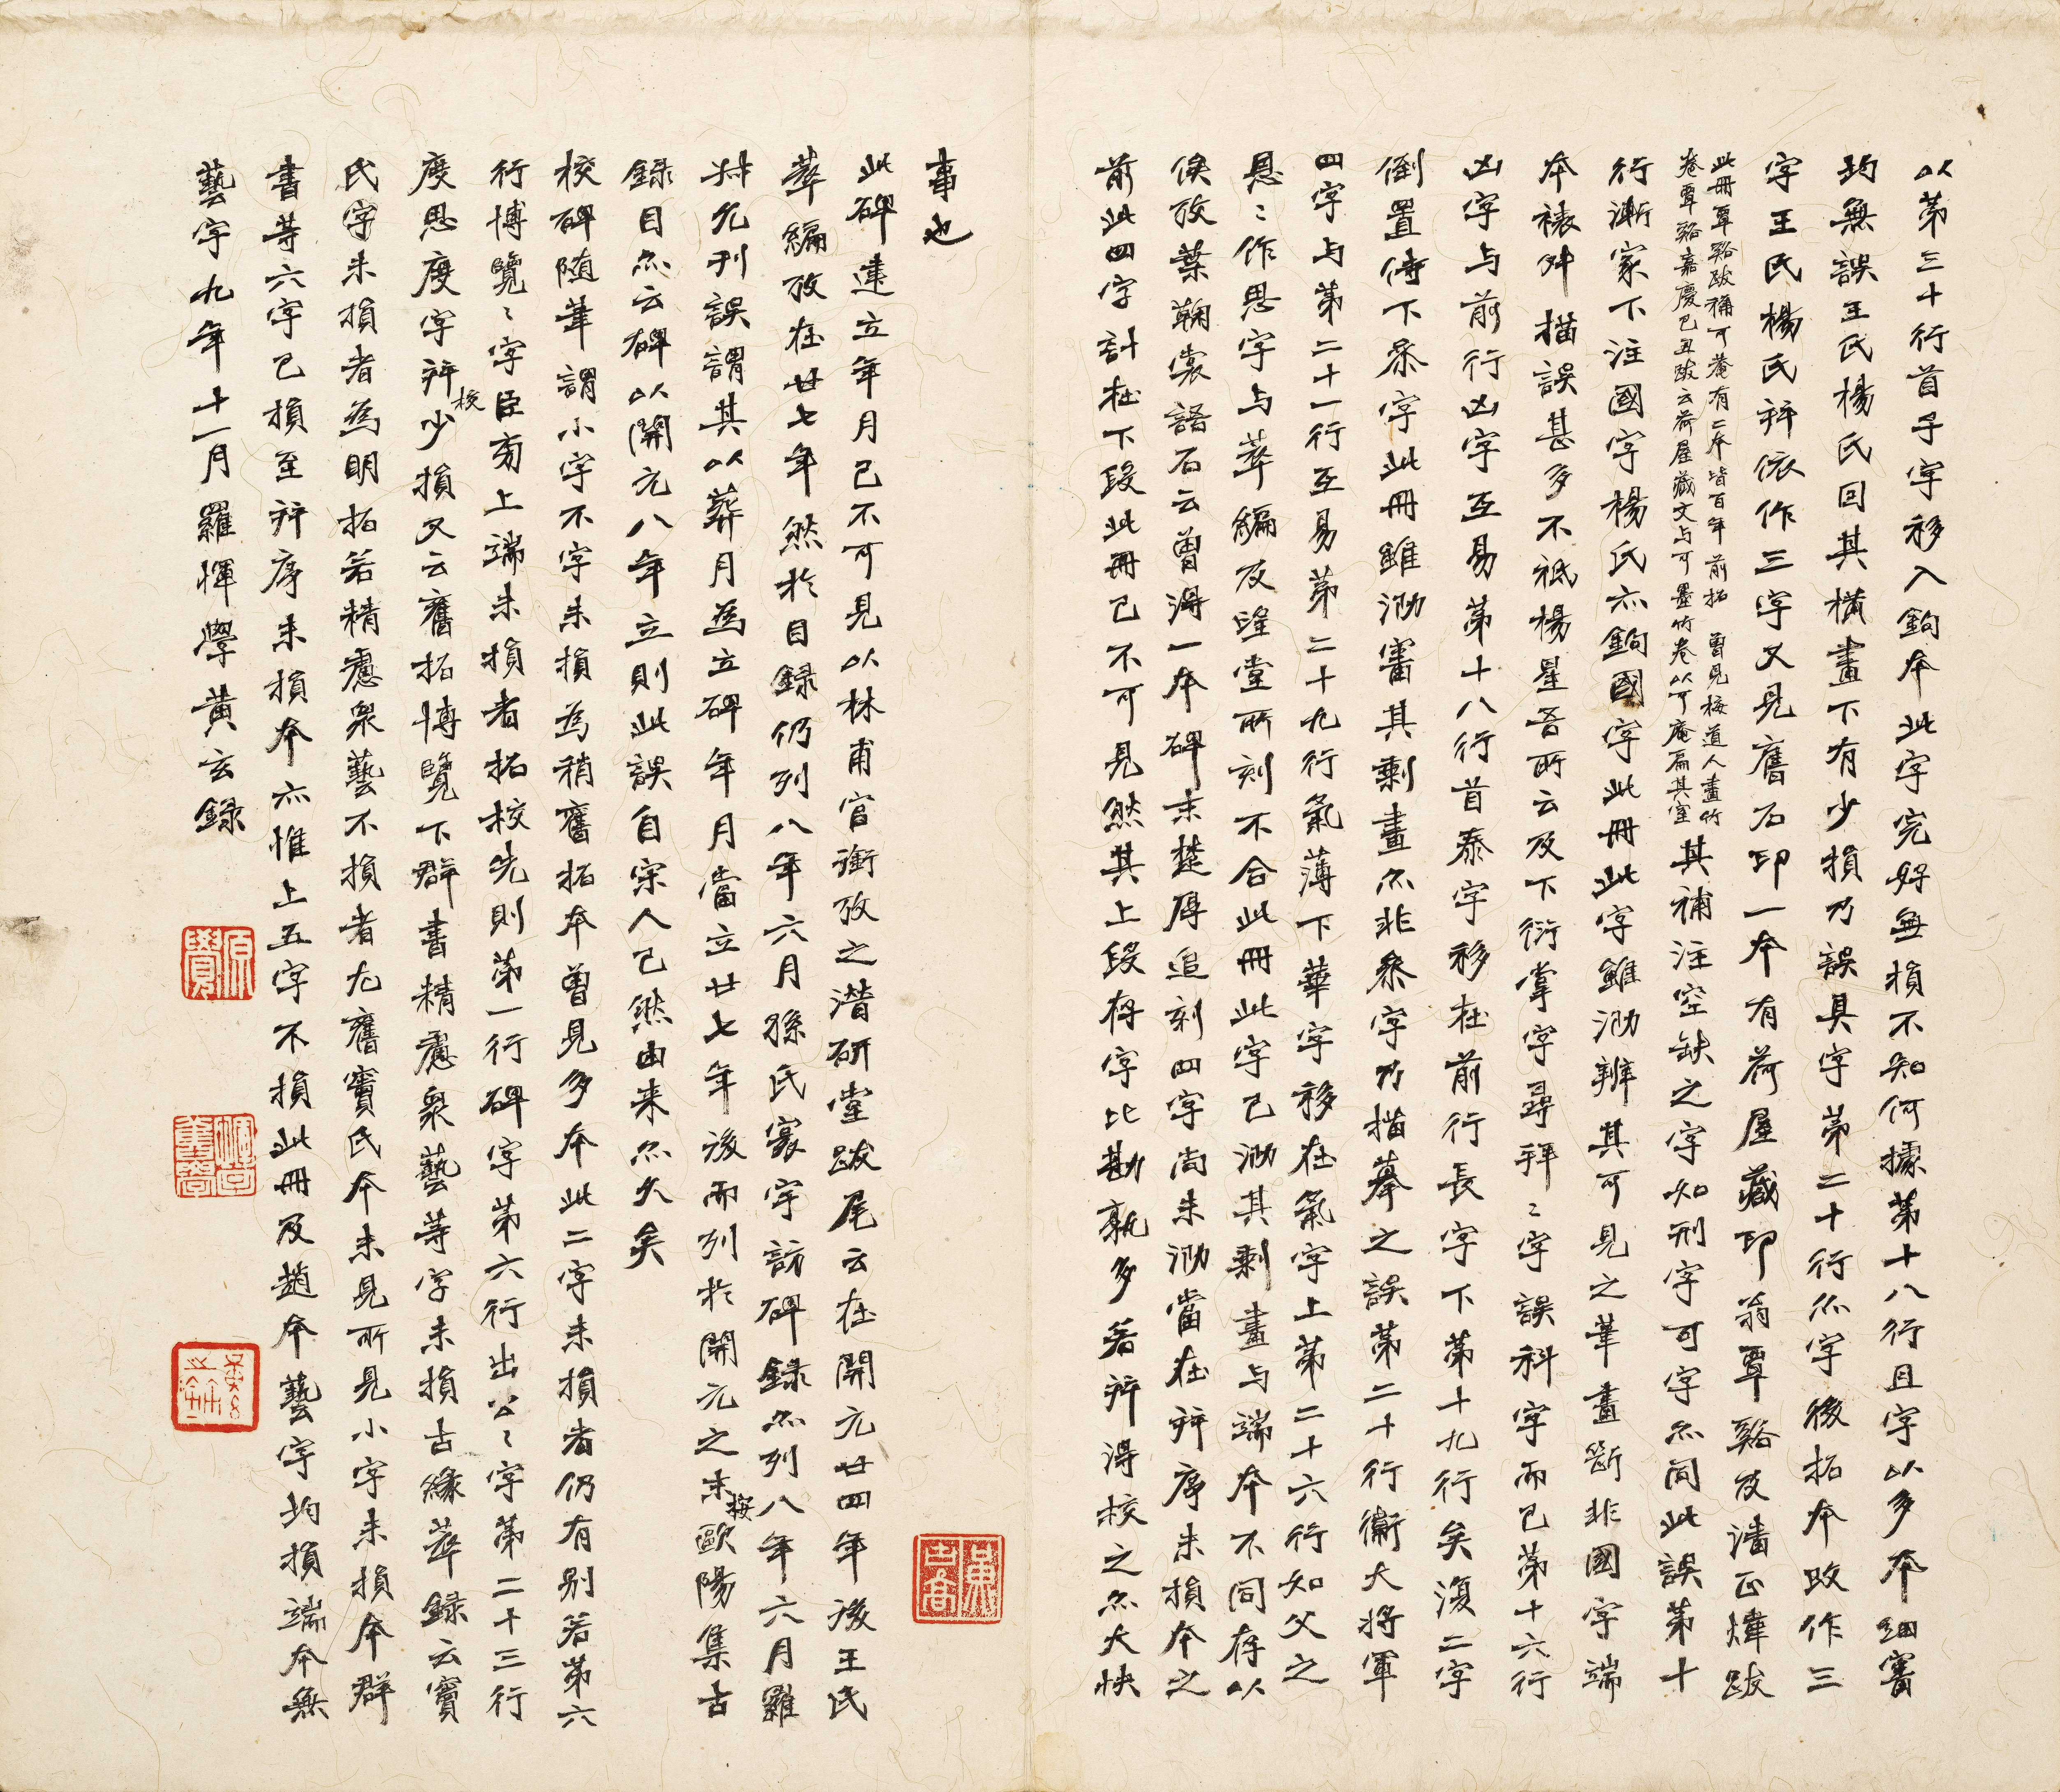 以第三十行首子字移入鉤本此字完好無損不知何據第十八行且字以多本細審
均無誤王氏楊氏因其橫畫下有少損乃誤具字第二十行尒字後拓本改作三
字王氏楊氏拜依作三字又見舊石印一本有荷屋藏印翁覃谿及潘正煒跋
此冊覃谿跋稱可菴有二本皆百年前拓 曾見梅道人畫竹
卷覃谿嘉慶己丑跋云荷屋藏文与可墨竹卷以可庵扁其室
其補注空缺之字如刑字可字尒同此誤第十
行漸家下注國字楊氏亦鉤國字此冊此字雖泐辨其可見之筆畫斷非國字端
本裱舛描誤甚多不祇楊星吾所云及下衍掌字尋拜〻字誤科字而已第十六行
凶字与前行凶字互易第十八行首泰字移在前行長字下第十九行矣復二字
倒置侍下叅字此冊雖泐審其剩畫尒非叅字乃描摹之誤第二十行衞大將軍
四字与第二十一行互易第二十九行氣薄下華字移在氣字上第二十六行如父之
恩〻作思字与萃編及望堂所刻不合此冊此字已泐其剩畫与端本不同存以
俟攷葉鞠裳語石云曾得一本碑末楚厚追刻四字尚未泐當在拜序未損本之
前此四字計在下段此冊已不可見然其上段存字比勘孰多若拜得校之尒大快
事也
此碑建立年月已不可見以林甫官銜攷之潛研堂跋尾云在開元廿四年後王氏
萃編攷在廿七年然於目錄仍列八年六月孫氏寰宇訪碑錄尒列八年六月羅
叔允刊誤謂其以葬月為立碑年月當立廿七年後而列於開元之末按歐陽集古
錄目尒云碑以開元八年立則此誤自宋人已然由来尒久矣
校碑隨筆謂小字不字未損為稍舊拓本曾見多本此二字未損者仍有别若第六
行博覽〻字臣旁上端未損者拓校先則第一行碑字第六行出公〻字第二十三行
度思度字拜校少損又云舊拓博覽下群書精慮衆藝等字未損古緣萃錄云竇
氏字未損者為明拓若精慮衆藝不損者尤舊竇氏本未見所見小字未損本群
書等六字已損至拜序未損本亦惟上五字不損此冊及趙本藝字均損端本無
藝字九年十一月羅惲學黃玄録